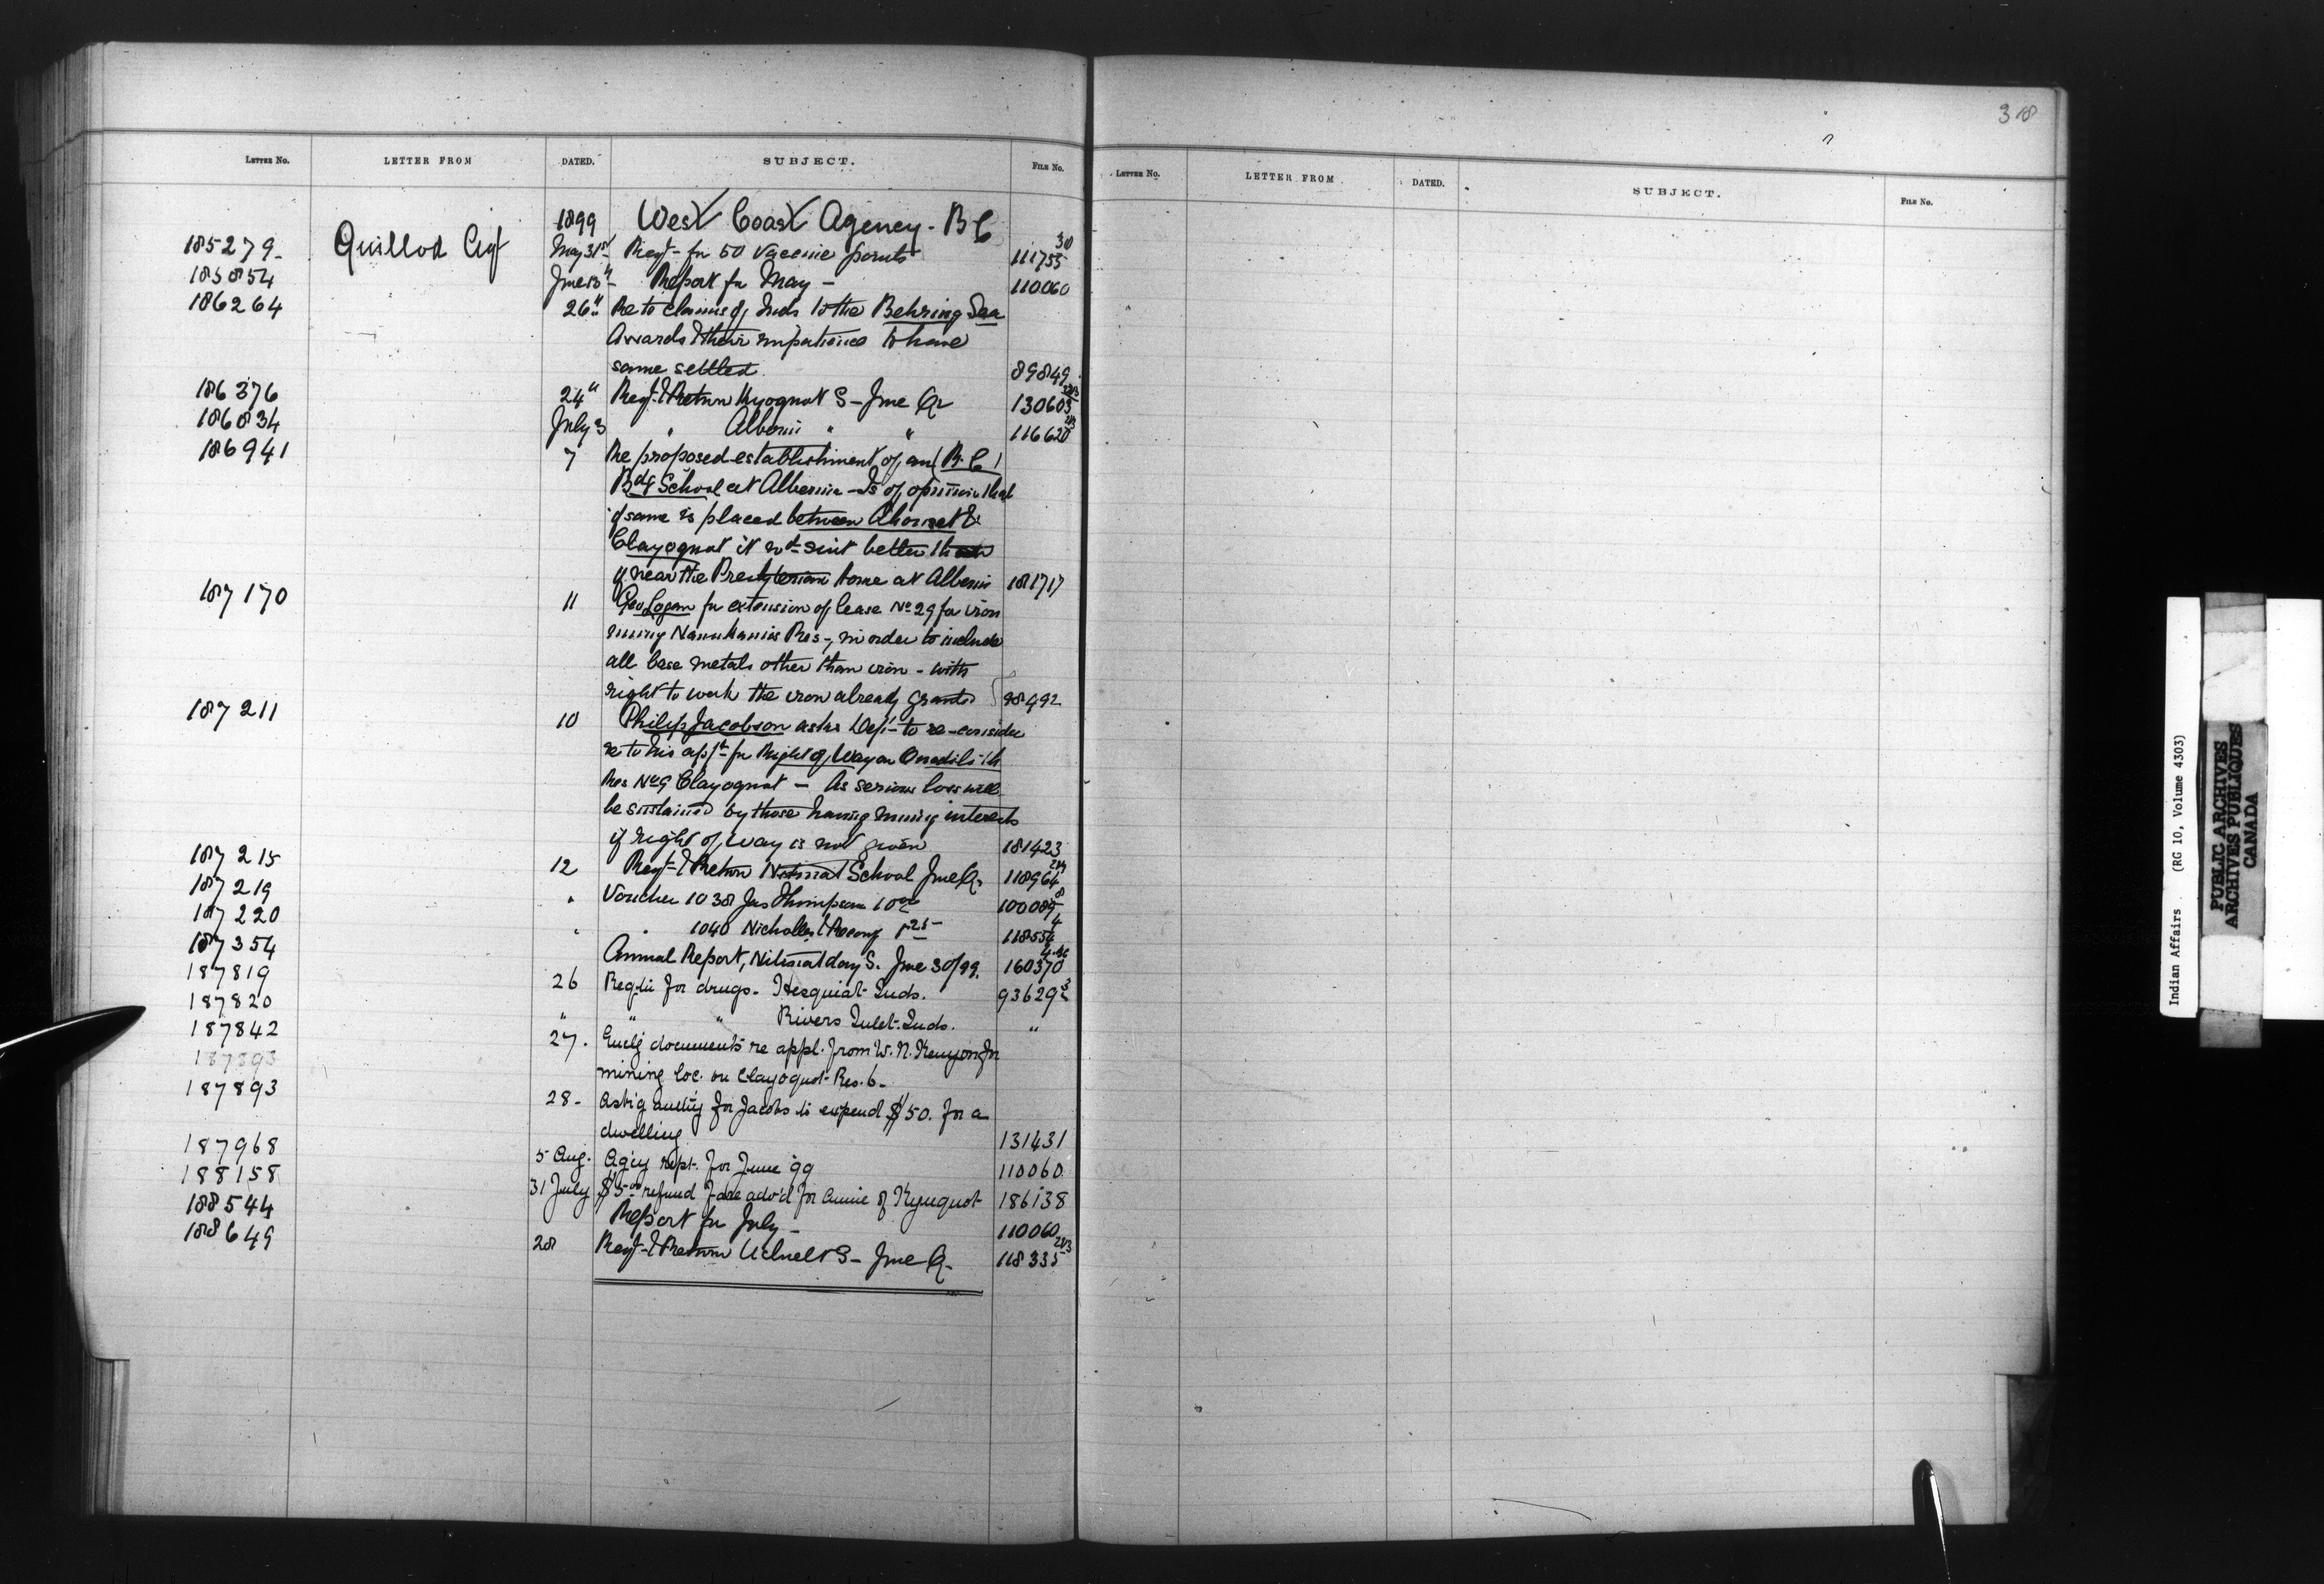 318
LETTER No. LETTER FROM DATED. SUBJECT. FILE No.
LETTER No. LETTER FROM DATED. SUBJECT. FILE No.
1899 West Coast Agency - B C
185279 Guillod Agt May 31st Reqt - for 50 Vaccine points 111755 30
185854 June 13" Report for May - 110060
186264 26" Re to claims of Inds to the Behring Sea
Awards & their impatience to have
same settled 89849
186376 24" Regr & Return Kyoquot S - June Qr 130603
186834 July 3 " Alberni " " 116620
186941 7 Re proposed establishment of an R.C.
Bdg School at Alberni - Is of opinion that
if same is placed between Ahouset &
Clayoquot it wd suit better than
if near the Presbyterian home at Alberni 181717
187170 11 Geo Logan for extension of lease No 29 for iron
mining Res -, in order to include
all base metals other than iron - with
right to work the iron already granted 98492
187211 10 Philip Jacobson asks Dept - to re-consider
re to his appn for Right of Way on
Res No 9 Clayoquot - As serious loss will
be sustained by those having mining interests
if right of way is not given 181423
187215 12 Regr & Return Nitinat School June Qr 118964
187219 " Voucher 1038 Jas Thompson 10 100089 8
187220 " " 1040 Nicholles & Renouf 118554 4
187354 Annual Report, Nitinat day S. June 30/99. 160370
187819 26 Reqtn for drugs - Hesquiat Inds. 93629
187820 " " " Rivers Inlet Inds. "
187842 27. Enclg documents re appl. from W. N. Kenyon for
187893
mining loc. on Clayoquot Res. 6 -
187893 28 - Askg authy for Jacobs to expend $50. for a
dwelling 131431
187968 5 Aug. Agcy rept. for June 99 110060
188158 31 July $5 refund fare advd for Annie of Kyuquot 186138
188544 Report for July - 110060
188649 28 Regr & Return Ucluelt S - June Q - 118335
Indian Affairs (RG 10, Volume 4303)
PUBLIC ARCHIVES
ARCHIVES PUBLIQUES
CANADA